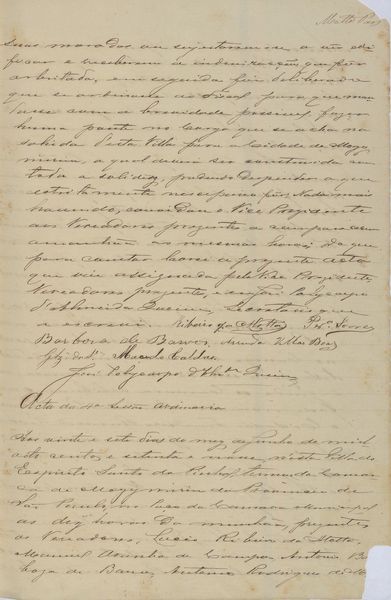 suas moradas ou sujeitarem-se a
ficar e receberem a indemnização que for
arbitrada, em seguida foi deliberado
que se ordenasse ao Fiscal para que man
dasse com a brevidade possivel fazer
huma ponte no corgo que se acha na
sahida desta Villa para a Cidade de Mogy
mirim, a qual devia ser construida com
toda a solidez, podendo despender o que
estrictamente necessario fôr. Nada mais
havendo, convidou o Vice Presidente
aos Vereadores presentes a comparecerem
amanhã as mesmas horas; do que
para constar lavrei a presente acta
que vai assignada pelo Vice Presidente,
Vereadores presentes, eu José Polycarpo
d'Almeida Secretario que
o escrevi. Ribeiro da Motta
Barbosa de Barros
Macedo Caldas
José Polycarpo d'Almda
Acta da 4ª Sessão Ordinaria
Aos vinte e sete dias do mez de Junho de mil
oito centos e setenta e nove, nesta Villa do
Espirito Santo do Pinhal, termo da Comar
ca de Mogymirim da Provincia de
São Paulo, no Paço da Camara Municipal
as dez horas da manhã, presentes
os Vereadores, Lucio Ribeiro da Motta,
Manuel Aranha de Campos, Antonio Bar
boza de Barros, Antonio Rodrigues de